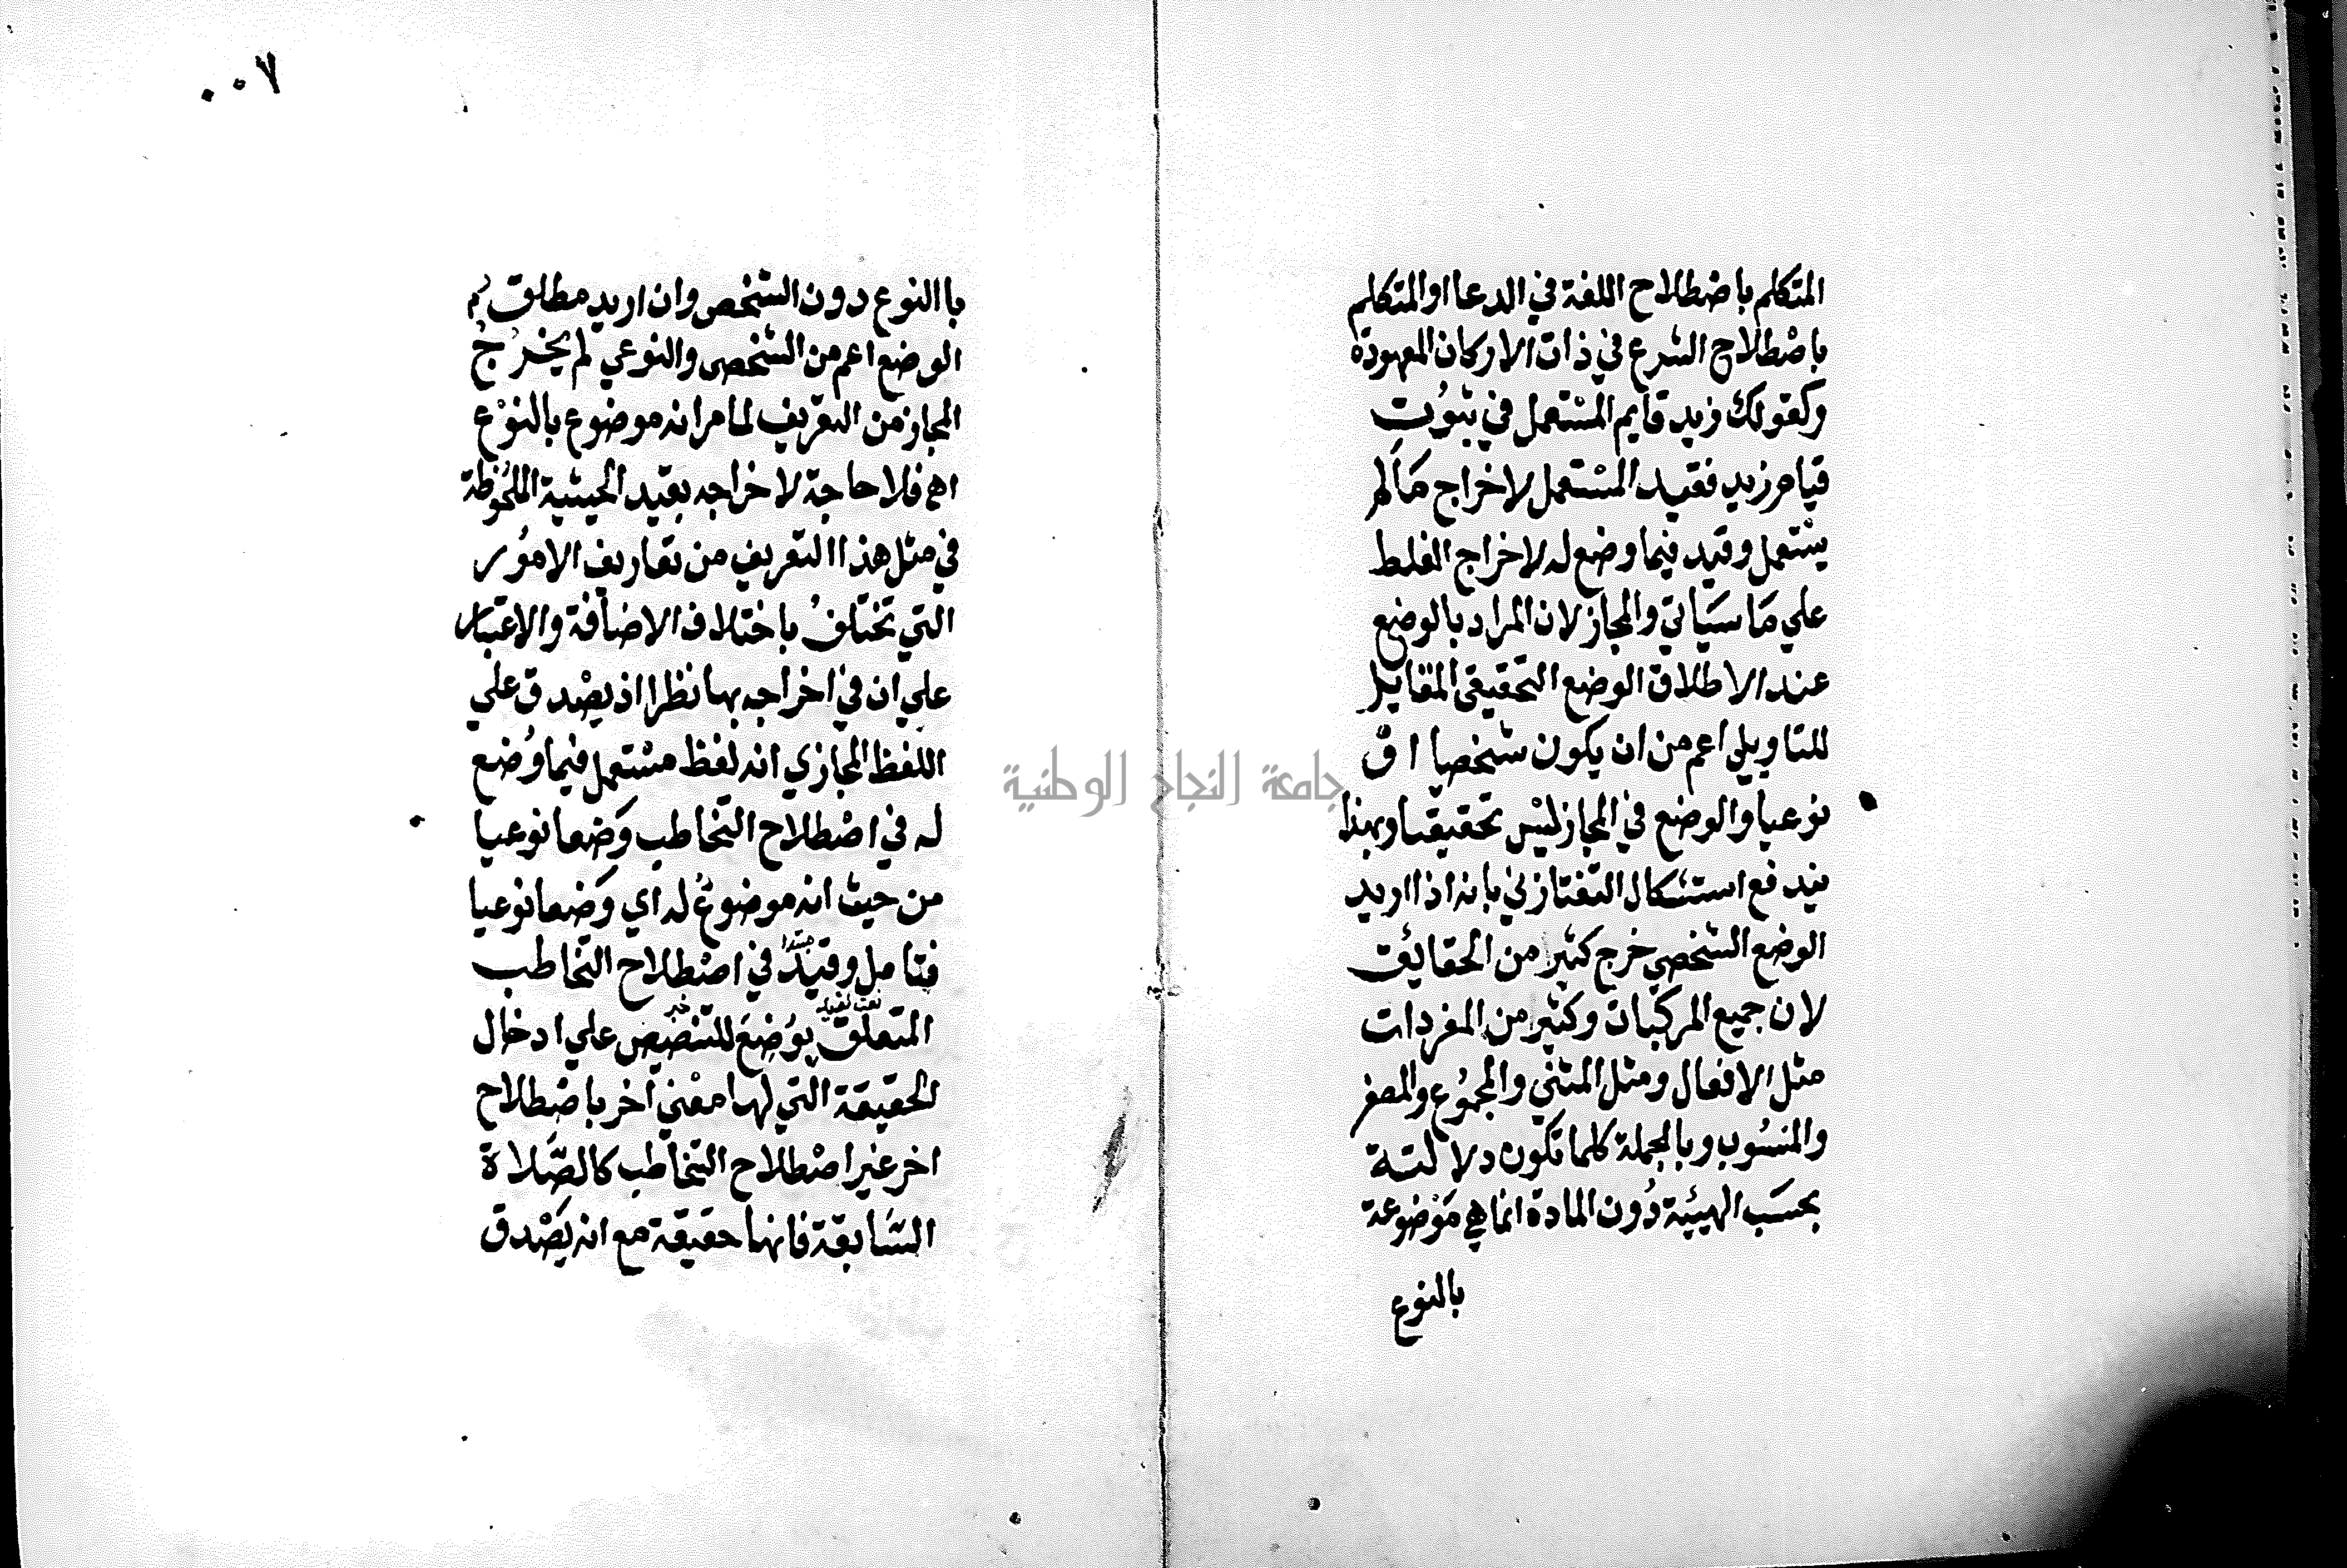 المتكلم باضطلاح اللغة في الدعا او المتكلم
باصْطلاح الشرع في ذات الاركان المعهودة
وكقولك زيد قايم المسْتعمل في ثبُوت
قيام زيد فقيد المسْتعمل لاخراج مَا لم
يسْتعمل وقيد فيما وضع له لاخراج الغلط
علي مَا سيَاتي والمجاز لان المراد بالوضع
عند الاطلاق الوضع التحقيقي المقابل
للتاويلي اعم من ان يكون شخصيا او
نوعيا والوضع في المجاز ليسْ تحقيقيا وبهذا
يندفع استشكال التفتازني بانه اذا اريد
الوضع الشخصي خرج كثير من الحقايق
لان جميع المركبات وكثير من المفردات
مثل الافعال ومثل المثني والمجمُوع والمصغر
والمنسُوب وبالجملة كلما تكون دلالته
بحسَب الهيئة دُون المادة انما هي مَوْضوعة
بالنوع
٠٠٧
باالنوع دون الشخص وان اريد مطلق
الوضع اعم من الشخصي والنوعي لم يخرُجُ
المجاز من التعريف لما مر انه موضوع بالنوْع
اهـ فلا حاجة لاخراجه بقيد الحيثية الملحُوظة
في مثل هذا التعريف من تعاريف الامُور
التي تختلفُ باختلاف الاضافة والاعتبار
علي ان في اخراجه بها نظرا اذ يصْدق علي
اللفظ المجازي انه لفظ مسْتعمل فيما وُضع
له في اصْطلاح التخاطب وَضعا نوعيا
من حيث انه موضوعُ له اي وَضعا نوعيا
فتامل وقيدُ في اصْطلاح التخاطب
مبتدا
المتعلق بوُضعَ للتنصيص علي ادخال
نعت لقيد خبر
الحقيقة التي لها معْني اخر باصْطلاح
اخر غير اصْطلاح التخاطب كالصَّلاة
السَّابقة فانها حقيقة مع انه يَصْدق
جامعة النجاح الوطنية